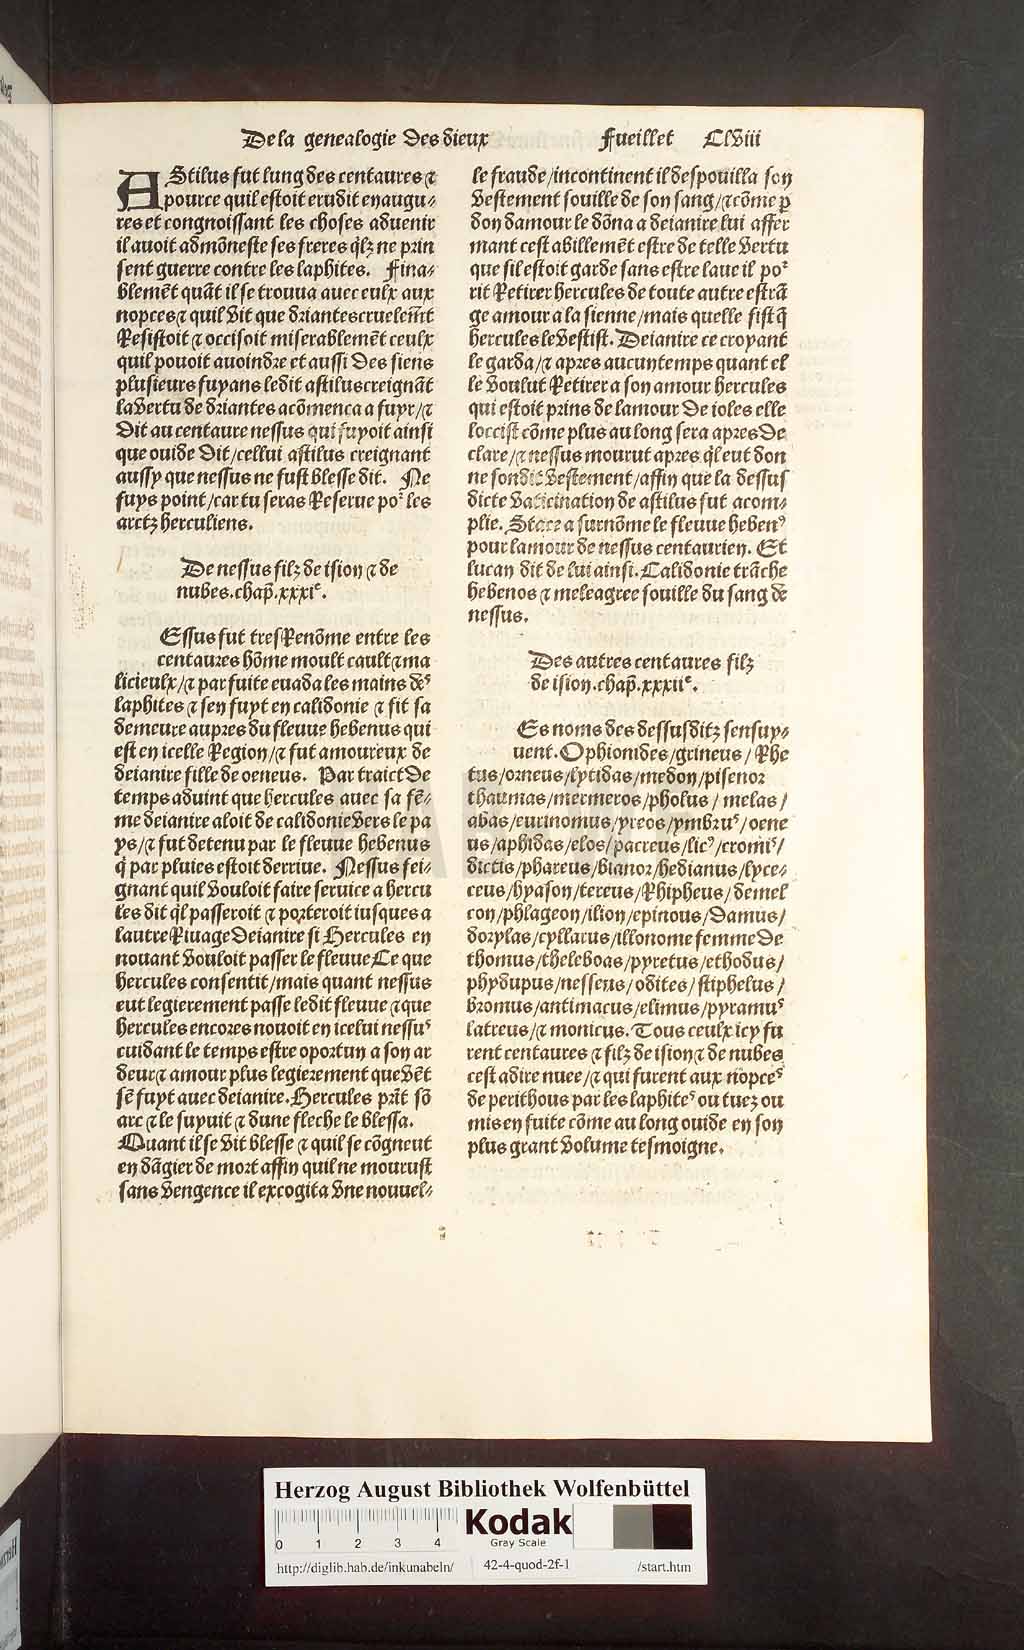 De la genealogie des dieux Fueillet Clviii
AStilus fut lung des centaures ⁊
pource quil estoit erudit en augu⸗
res et congnoissant les choses aduenir
il auoit admōneste ses freres q̄lz ne prin
sent guerre contre les laphites. Fina⸗
blemēt quāt il se trouua auec eulx aux
nopces ⁊ quil vit que driantes cruelemēt
resistoit ⁊ occisoit miserablemēt ceulx
quil pouoit auoindre et aussi des siens
plusieurs fuyans ledit astilus creignāt
la vertu de driantes acōmenca a fuyr/⁊
dit au centaure nessus qui fuyoit ainsi
que ouide dit/cellui astilus creignant
aussy que nessus ne fust blesse dit. Ne
fuys point/car tu seras reserue por les
arctz herculiens.
De nessus filz de ision ⁊ de
nubes.chap̄.xxxie.
Essus fut tresrenōme entre les
centaures hōme moult cault ⁊ ma
licieulx/⁊ par fuite euada les mains des
laphites ⁊ sen fuyt en calidonie ⁊ fit sa
demeure aupres du fleuue hebenus qui
est en icelle region/⁊ fut amoureux de
deianire fille de oeneus. Par traict de
temps aduint que hercules auec sa fē⸗
me deianire aloit de calidonie vers le pa
ys/⁊ fut detenu par le fleuue hebenus
q̄ par pluies estoit derriue. Nessus fei⸗
gnant quil vouloit faire seruice a hercu
les dit q̄l passeroit ⁊ porteroit iusques a
lautre riuage Deianire si Hercules en
nouant vouloit passer le fleuue Ce que
hercules consentit/mais quant nessus
eut legierement passe ledit fleuue ⁊ que
hercules encores nouoit en icelui nessus
cuidant le temps estre oportun a son ar
deur ⁊ amour plus legierement que vēt
sē fuyt auec deianire. Hercules prīt sō
arc ⁊ le suyuit ⁊ dune fleche le blessa.
Quant il se vit blesse ⁊ quil se cōgneut
en dāgier de mort affin quil ne mourust
sans vengence il excogita vne nouuel⸗
le fraude/incontinent il despouilla son
vestement souille de son sang/⁊ cōme p
don damour le dōna a deianire lui affer
mant cest abillemēt estre de telle vertu
que sil estoit garde sans estre laue il por
rit retirer hercules de toute autre estrā
ge amour a la sienne/mais quelle fist q̄
hercules le vestist. Deianire ce croyant
le garda/⁊ apres aucun temps quant el
le voulut retirer a son amour hercules
qui estoit prins de lamour de ioles elle
loccist cōme plus au long sera apres de
clare/⁊ nessus mourut apres q̄l eut don
ne son dit vestement/affin que la dessus
dicte vaticination de astilus fut acom⸗
plie. Stace a surnōme le fleuue heben9
pour lamour de nessus centaurien. Et
lucan dit de lui ainsi. Calidonie trāche
hebenos ⁊ meleagree souille du sang de
nessus.
Des autres centaures filz
de ision.chap̄.xxxiie.
Es noms des dessusditz sensuy⸗
uent. Ophionides/grineus/rhe
tus/orneus/lytidas/medon/pisenor
thaumas/mermeros/pholus/melas/
abas/eurinomus/yreos/ymbrus/oene
us/aphidas/elos/pacreus/lic9/cromis/
dictis/phareus/bianor/hedianus/lyce⸗
ceus/hyason/tereus/rhipheus/demel
con/phlageon/ilion/epinous/Damus/
dorylas/cyllarus/illonome femme de
thomus/theleboas/pyretus/ethodus/
phydupus/nesseus/odites/stiphelus/
bromus/antimacus/elimus/pyramus
latreus/⁊ monicus. Tous ceulx icy fu
rent centaures ⁊ filz de ision ⁊ de nubes
cest adire nuee/⁊ qui furent aux nopces
de perithous par les laphites ou tuez ou
mis en fuite cōme au long ouide en son
plus grant volume tesmoigne.
HAB
Herzog August Bibliothek Wolfenbüttel
0 1 2 3 4
Kodak
Gray Scale
http://diglib.hab.de/inkunabeln/ 42-4-quod-2f-1 /start.htm